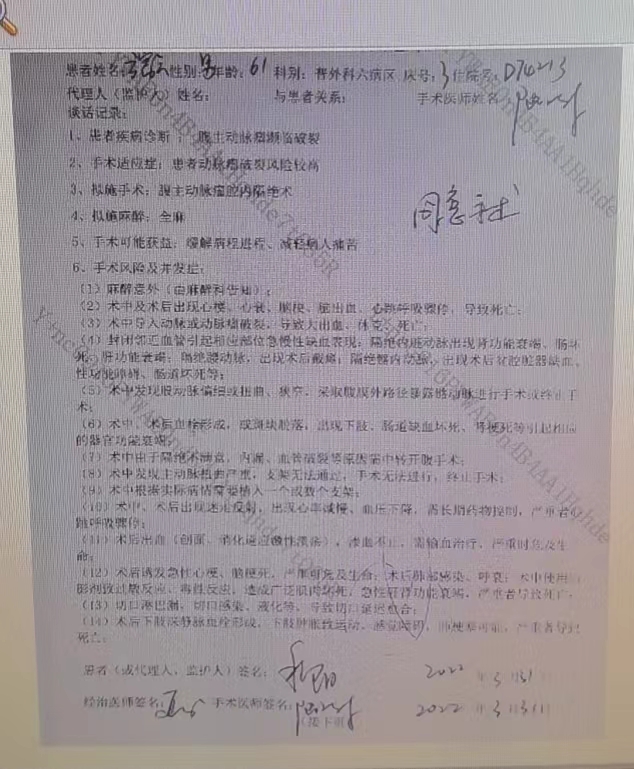 患者姓名: 性别:男年龄:61 科别:普外科六病区 床号:3住院号:D74213
代理人(监护人)姓名: 与患者关系: 手术医师姓名
谈话记录:
1、患者疾病诊断:腹主动脉瘤濒临破裂
2、手术适应症:患者动脉瘤破裂风险较高
3、拟施手术:腹主动脉瘤腔内隔绝术
同意手术
4、拟施麻醉:全麻
5、手术可能获益:缓解病程进程、减轻病人痛苦
6、手术风险及并发症:
(1)麻醉意外(由麻醉科告知);
(2)术中及术后出现心梗、心衰、脑梗、脑出血、心跳呼吸骤停,导致死亡;
(3)术中导入动脉或动脉瘤破裂,导致大出血,休克,死亡;
(4)封闭邻近血管引起相应部位急慢性缺血表现:隔绝内脏动脉出现肾功能衰竭、肠坏
死、肝功能衰竭;隔绝腰动脉,出现术后截瘫;隔绝髂内动脉,出现术后盆腔脏器缺血、
性功能障碍、肠道坏死等;
(5)术中发现股动脉偏细或扭曲、狭窄,采取腹膜外路径暴露髂动脉进行手术或终止手
术;
(6)术中、术后血栓形成,或斑块脱落,出现下肢、肠道缺血坏死、肾梗死等引起相应
的器官功能衰竭;
(7)术中由于隔绝不满意,内漏、血管破裂等原因需中转开腹手术;
(8)术中发现主动脉扭曲严重,支架无法通过,手术无法进行,终止手术;
(9)术中根据实际病情需要植入一个或数个支架;
(10)术中、术后出现迷走反射,出现心率减慢、血压下降,需长期药物控制,严重者
跳呼吸骤停;
(11)术后出血(创面、消化道应激性溃疡),渗血不止,需输血治疗,严重时危及生
命;
(12)术后诱发急性心梗、脑梗死,严重可危及生命;术后肺部感染、呼衰;术中使用
影剂致过敏反应、毒性反应,造成广泛肌肉坏死,急性肝肾功能衰竭,严重者导致死亡;
(13)切口淋巴漏,切口感染、液化等,导致切口延迟愈合;
(14)术后下肢深静脉血栓形成,下肢肿胀致运动、感觉障碍,肺梗塞可能,严重者导致
死亡;
患者(或代理人、监护人)签名: 2022年3月31
经治医师签名: 手术医师签名: 2022年3月31日
(接下页)